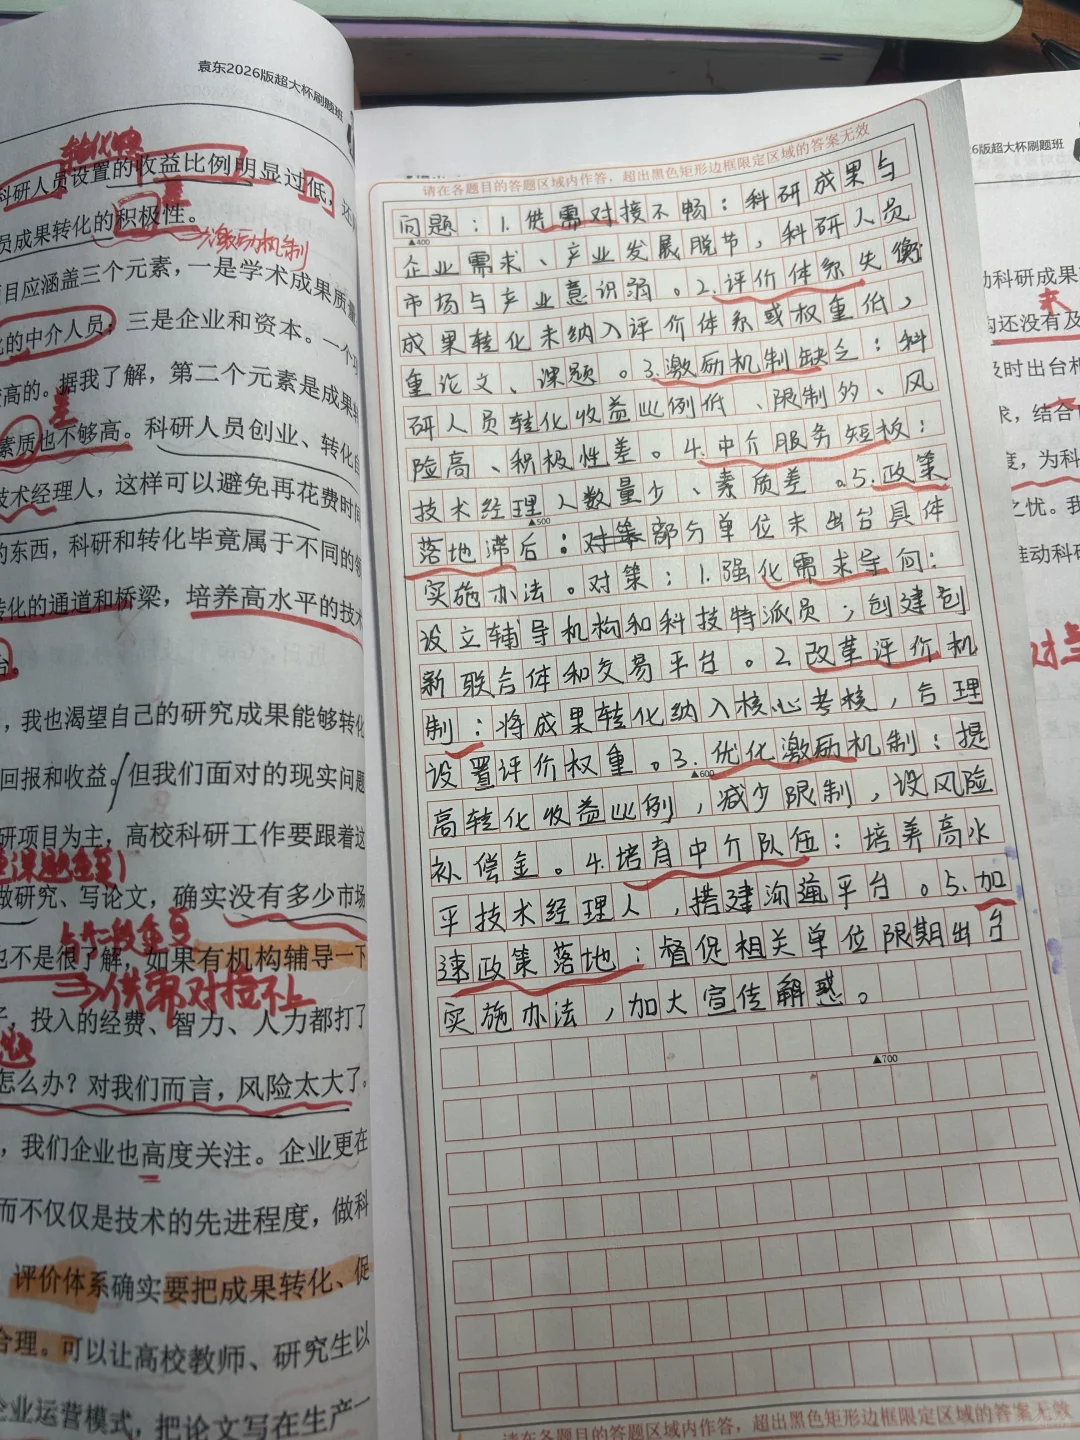 袁东2026版超大杯刷题班
转化
科研人员设置的收益比例明显过低，这
差
员成果转化的积极性。
激励机制
目应涵盖三个元素，一是学术成果质量
化的中介人员；三是企业和资本。一个项
较高的。据我了解，第二个元素是成果转
差
素质也不够高。科研人员创业、转化自
技术经理人，这样可以避免再花费时间
的东西，科研和转化毕竟属于不同的领
转化的通道和桥梁，培养高水平的技术
台。
，我也渴望自己的研究成果能够转化
回报和收益。但我们面对的现实问题
研项目为主，高校科研工作要跟着这
做研究、写论文，确实没有多少市场
也不是很了解，如果有机构辅导一下
⇒供需对接不上
投入的经费、智力、人力都打了
怎么办？对我们而言，风险太大了。
，我们企业也高度关注。企业更在
而不仅仅是技术的先进程度，做科
评价体系确实要把成果转化、促
合理。可以让高校教师、研究生以
企业运营模式，把论文写在生产一
请在各题目的答题区域内作答，超出黑色矩形边框限定区域的答案无效
问题：1.供需对接不畅：科研成果与
▲400
企业需求、产业发展脱节，科研人员
市场与产业意识弱。2.评价体系失衡
成果转化未纳入评价体系或权重低，
重论文、课题。3.激励机制缺乏：科
研人员转化收益比例低、限制多、风
险高、积极性差。4.中介服务短板：
技术经理人数量少、素质差。5.政策
▲500
落地滞后：对策部分单位未出台具体
实施办法。对策：1.强化需求导向：
设立辅导机构和科技特派员；创建创
新联合体和交易平台。2.改革评价机
制：将成果转化纳入核心考核，合理
设置评价权重。3.优化激励机制：提
▲600
高转化收益比例，减少限制，设风险
补偿金。4.培育中介队伍：培养高水
平技术经理人，搭建沟通平台。5.加
速政策落地：督促相关单位限期出台
实施办法，加大宣传解惑。
▲700
请在各题目的答题区域内作答，超出黑色矩形边框限定区域的答案无效
26版超大杯刷题班
动科研成果
未
构还没有及
及时出台相
求，结合
度，为科
之忧。我
推动科研
对